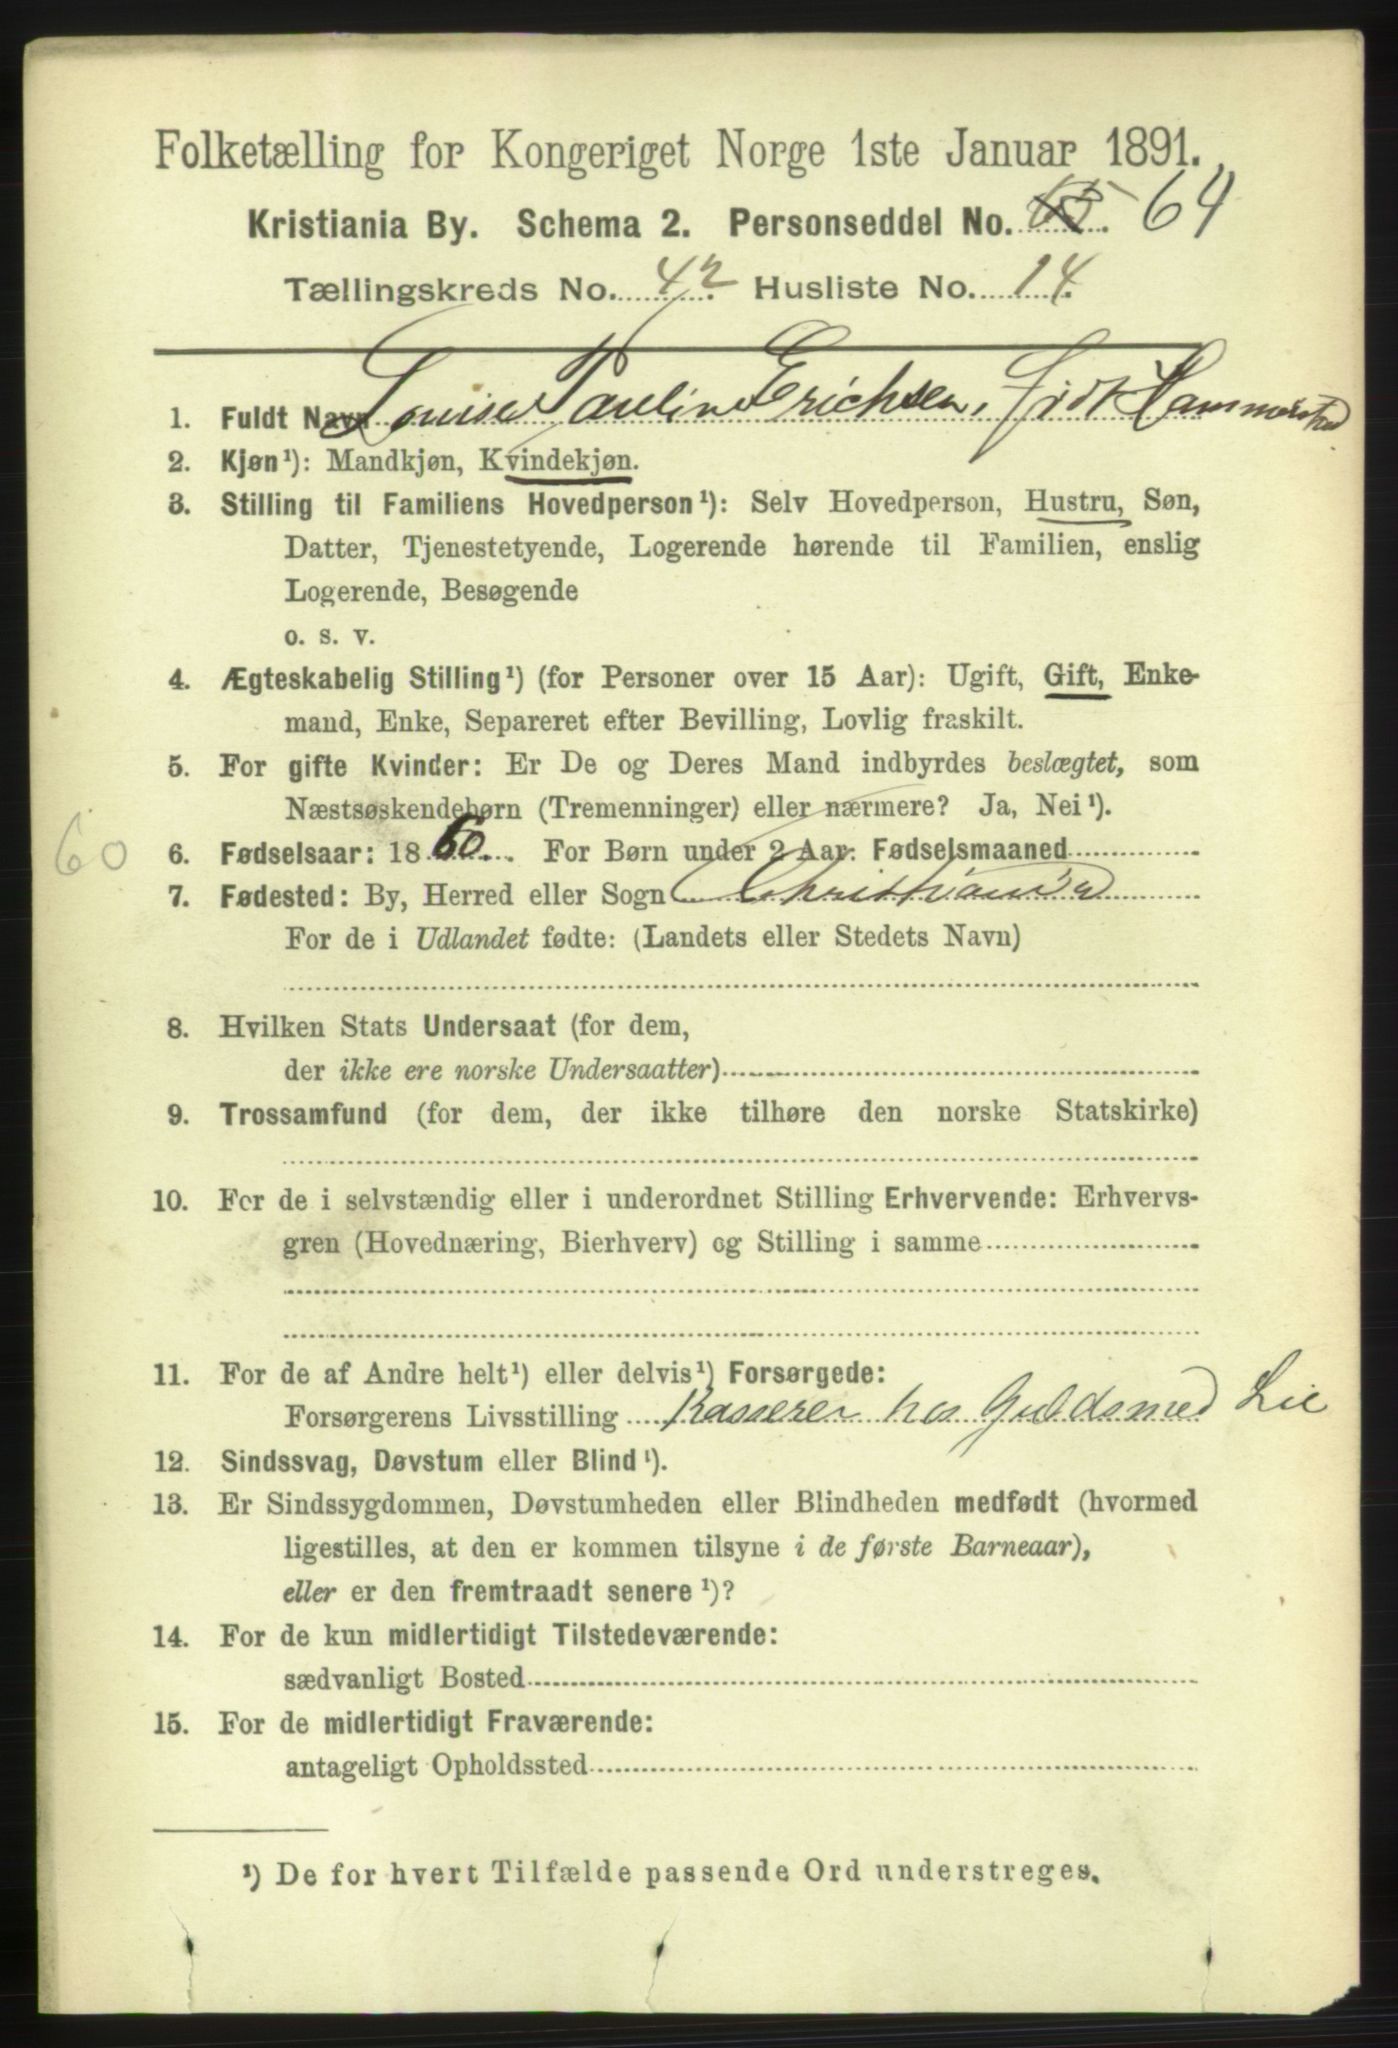 Folketælling for Kongeriget Norge 1ste Januar 1891.
Kristiania By. Schema 2. Personseddel No. 64
Tællingskreds No. 42 Husliste No. 14.
1. Fuldt Navn Louise Pauline Erichsen, født Hammerstad
2. Kjøn¹): Mandkjøn, Kvindekjøn.
3. Stilling til Familiens Hovedperson¹): Selv Hovedperson, Hustru, Søn,
Datter, Tjenestetyende, Logerende hørende til Familien, enslig
Logerende, Besøgende
o. s. v.
4. Ægteskabelig Stilling¹) (for Personer over 15 Aar): Ugift, Gift, Enke-
mand, Enke, Separeret efter Bevilling, Lovlig fraskilt.
5. For gifte Kvinder: Er De og Deres Mand indbyrdes beslægtet, som
Næstsøskendebørn (Tremenninger) eller nærmere? Ja, Nei¹).
60 6. Fødselsaar: 1860. For Børn under 2 Aar: Fødselsmaaned
7. Fødested: By, Herred eller Sogn Christiania
For de i Udlandet fødte: (Landets eller Stedets Navn)
8. Hvilken Stats Undersaat (for dem,
der ikke ere norske Undersaatter)
9. Trossamfund (for dem, der ikke tilhøre den norske Statskirke)
10. For de i selvstændig eller i underordnet Stilling Erhvervende: Erhvervs-
gren (Hovednæring, Bierhverv) og Stilling i samme
11. For de af Andre helt¹) eller delvis¹) Forsørgede:
Forsørgerens Livsstilling Kasserer hos Guldsmed Lie
12. Sindssvag, Døvstum eller Blind¹).
13. Er Sindssygdommen, Døvstumheden eller Blindheden medfødt (hvormed
ligestilles, at den er kommen tilsyne i de første Barneaar),
eller er den fremtraadt senere¹)?
14. For de kun midlertidigt Tilstedeværende:
sædvanligt Bosted
15. For de midlertidigt Fraværende:
antageligt Opholdssted
¹) De for hvert Tilfælde passende Ord understreges.